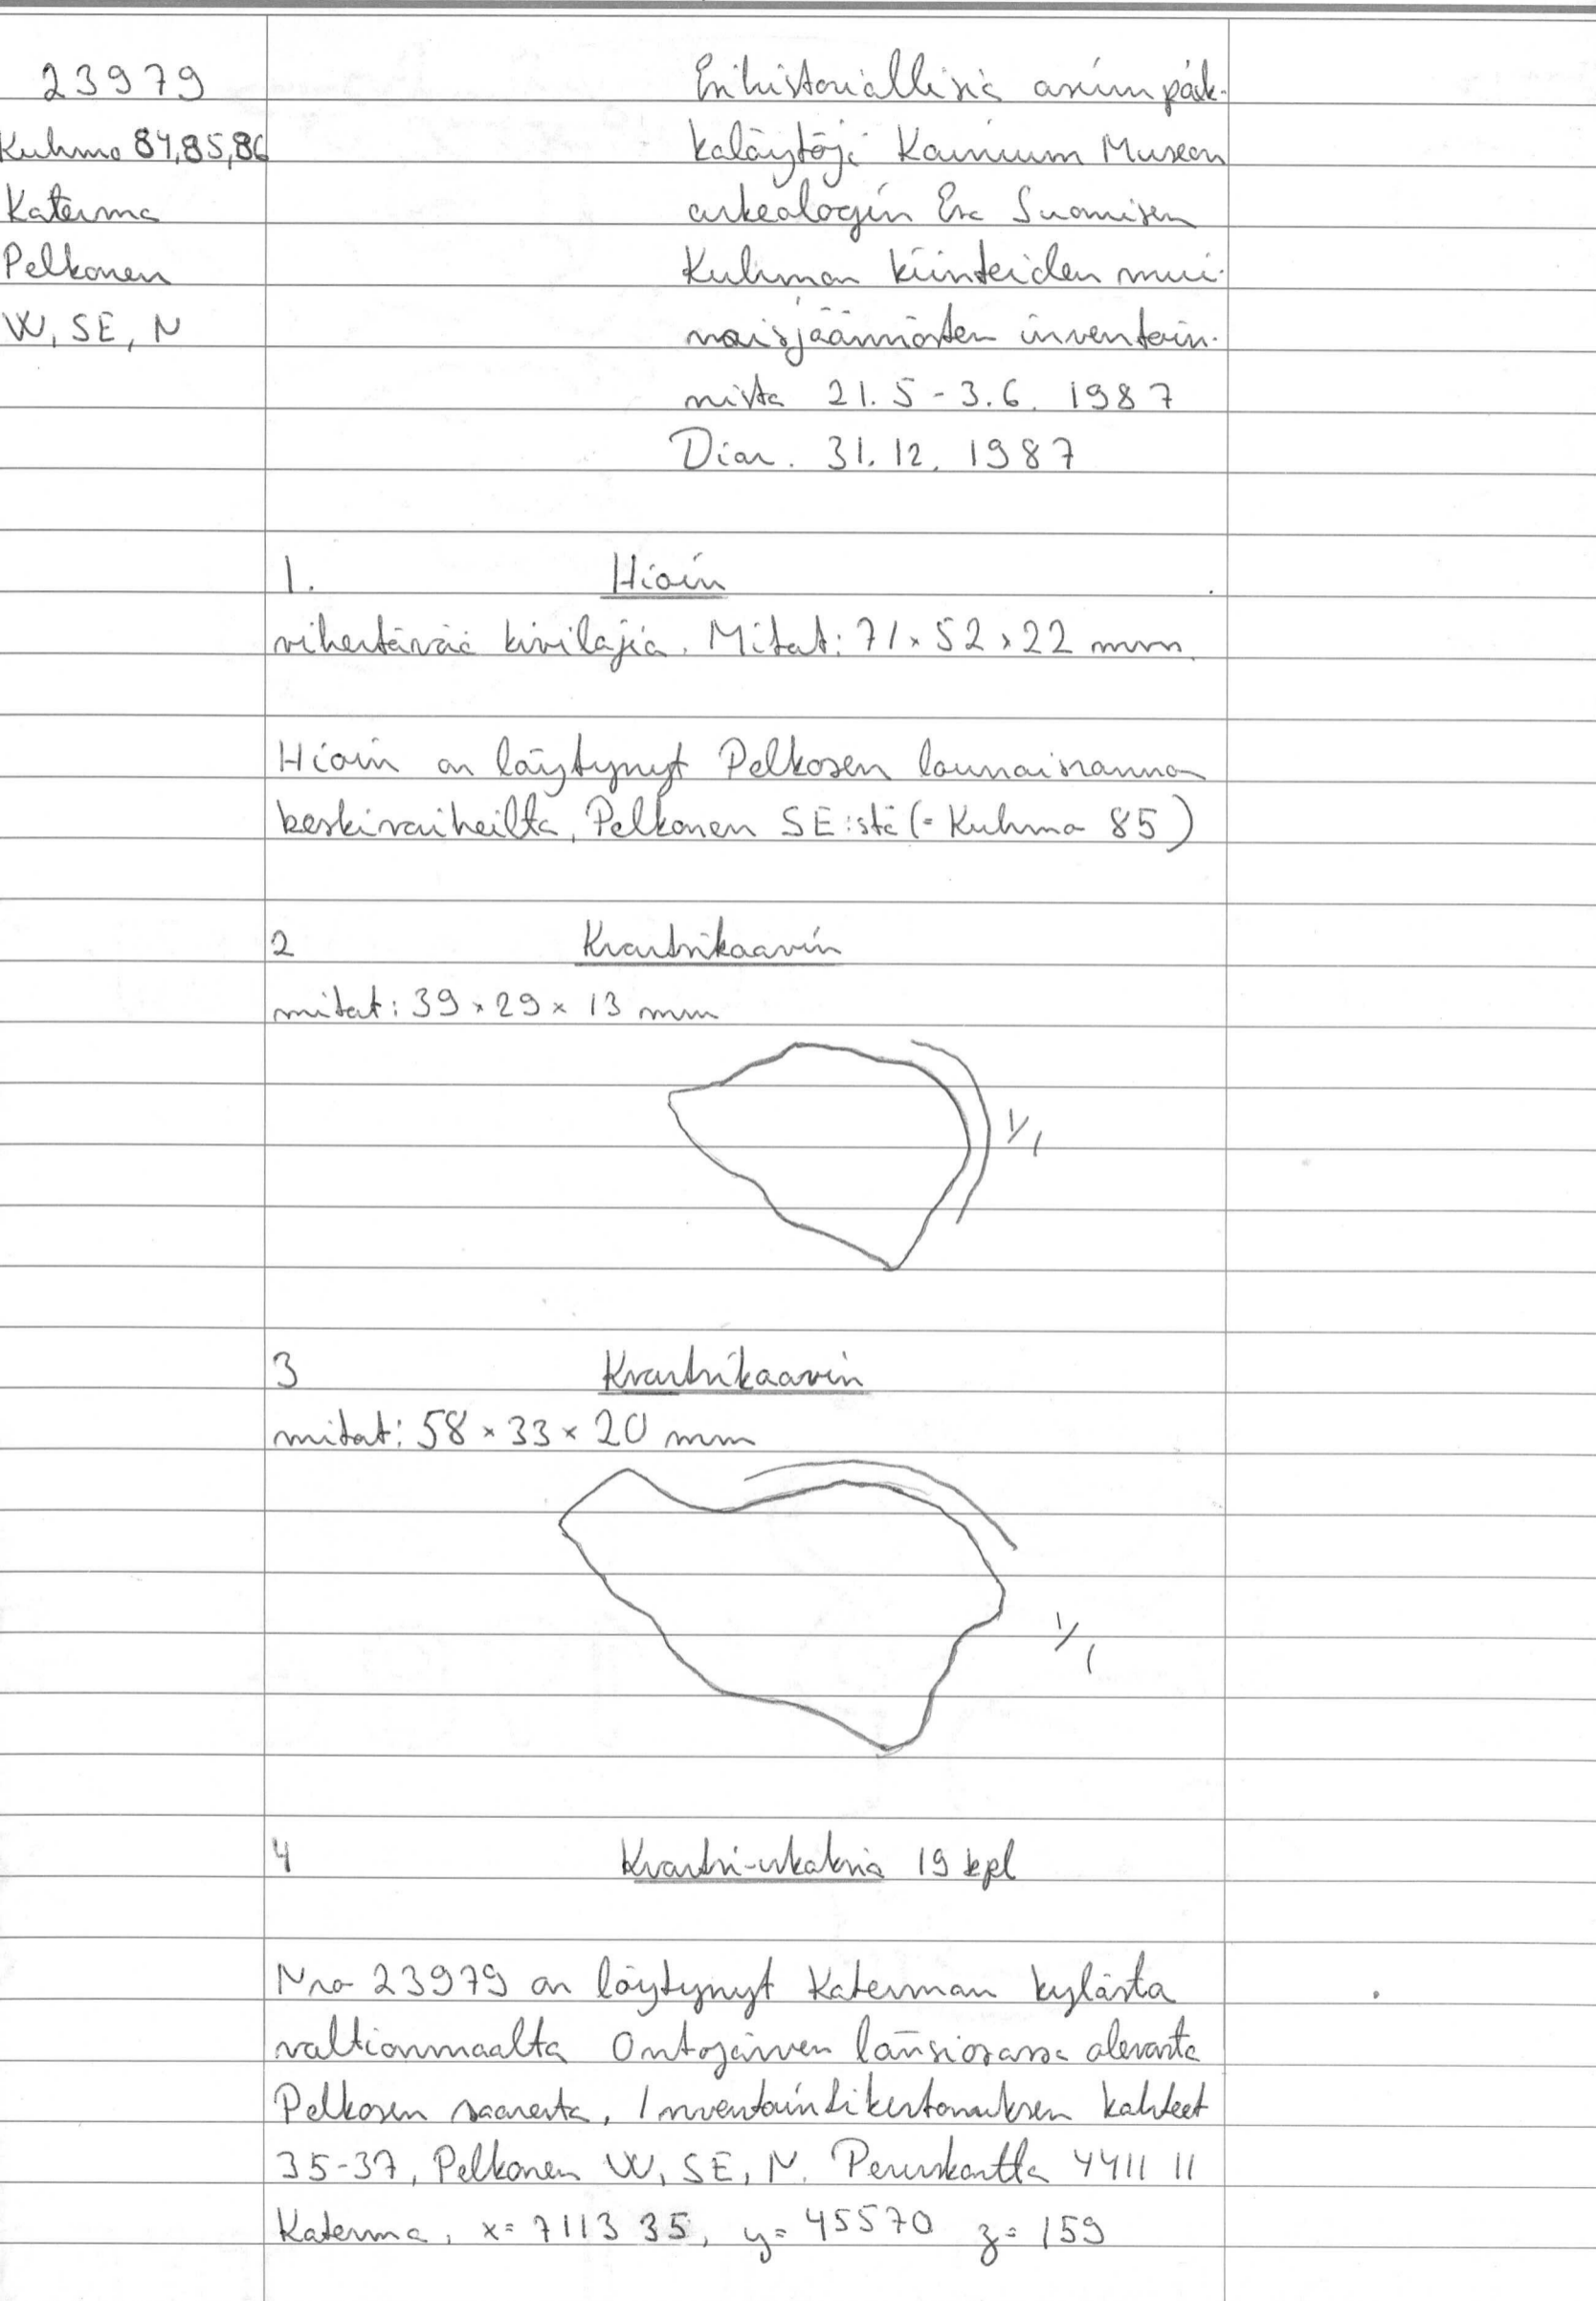 23979
Kuhmo 84,85,86
Katerma
Pelkonen
W, SE, N
Esihistoriallisia asuinpaik-
kalöytöjä Kainuun Museon
arkeologin Esa Suomisen
Kuhmon kiinteiden mui-
naisjäännösten inventoin-
nista 21.5-3.6. 1987
Diar. 31.12. 1987
1. Hioin
vihertävää kivilajia. Mitat: 71×52×22 mm.
Hioin on löytynyt Pelkosen lounaisrannan
keskivaiheilta, Pelkonen SE:stä (= Kuhmo 85)
2 Kvartsikaavin
mitat: 39×29×13 mm
1/1
3 Kvartsikaavin
mitat: 58×33×20 mm
1/1
4 Kvartsi-iskoksia 19 kpl
Nro 23979 on löytynyt Katerman kylästä
valtionmaalta Ontojärven länsiosassa olevasta
Pelkosen saaresta, Inventointikertomuksen kohteet
35-37, Pelkonen W, SE, N. Peruskartta 4411 11
Katerma, x= 7113 35, y= 45570 z= 159